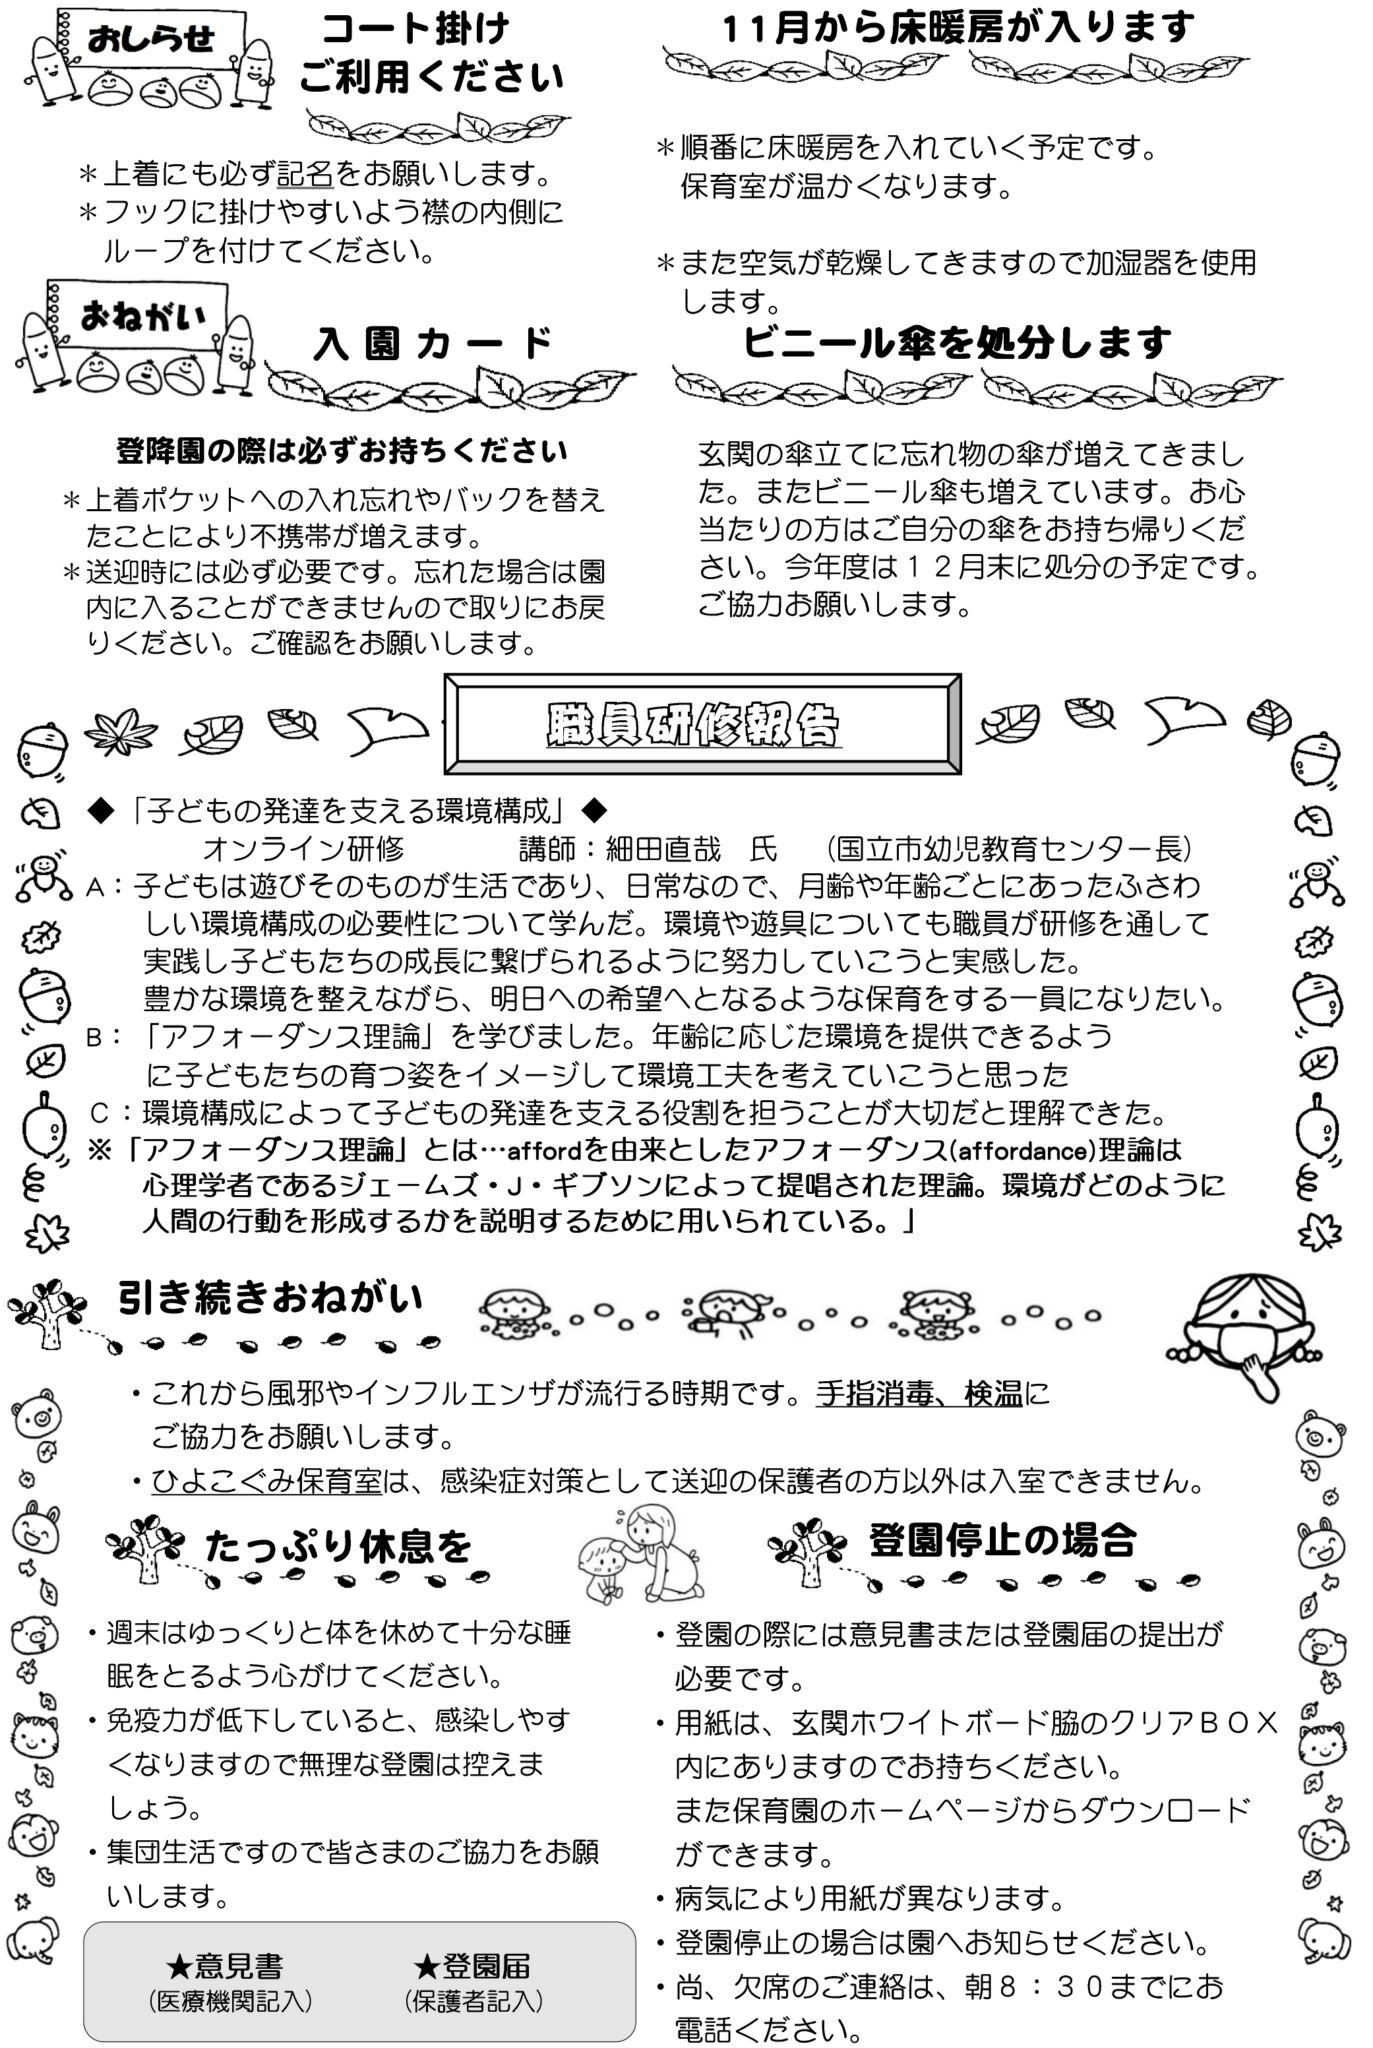 おしらせ
コート掛け
ご利用ください
＊上着にも必ず記名をお願いします。
＊フックに掛けやすいよう襟の内側に
ループを付けてください。
11月から床暖房が入ります
＊順番に床暖房を入れていく予定です。
保育室が温かくなります。
＊また空気が乾燥してきますので加湿器を使用
します。
おねがい
入園カード
登降園の際は必ずお持ちください
＊上着ポケットへの入れ忘れやバックを替え
たことにより不携帯が増えます。
＊送迎時には必ず必要です。忘れた場合は園
内に入ることができませんので取りにお戻
りください。ご確認をお願いします。
ビニール傘を処分します
玄関の傘立てに忘れ物の傘が増えてきまし
た。またビニール傘も増えています。お心
当たりの方はご自分の傘をお持ち帰りくだ
さい。今年度は１２月末に処分の予定です。
ご協力お願いします。
職員研修報告
◆「子どもの発達を支える環境構成」◆
オンライン研修　講師：細田直哉　氏　（国立市幼児教育センター長）
A：子どもは遊びそのものが生活であり、日常なので、月齢や年齢ごとにあったふさわ
しい環境構成の必要性について学んだ。環境や遊具についても職員が研修を通して
実践し子どもたちの成長に繋げられるように努力していこうと実感した。
豊かな環境を整えながら、明日への希望へとなるような保育をする一員になりたい。
B：「アフォーダンス理論」を学びました。年齢に応じた環境を提供できるよう
に子どもたちの育つ姿をイメージして環境工夫を考えていこうと思った
C：環境構成によって子どもの発達を支える役割を担うことが大切だと理解できた。
※「アフォーダンス理論」とは…affordを由来としたアフォーダンス(affordance)理論は
心理学者であるジェームズ・J・ギブソンによって提唱された理論。環境がどのように
人間の行動を形成するかを説明するために用いられている。」
引き続きおねがい
・これから風邪やインフルエンザが流行る時期です。手指消毒、検温に
ご協力をお願いします。
・ひよこぐみ保育室は、感染症対策として送迎の保護者の方以外は入室できません。
たっぷり休息を
・週末はゆっくりと体を休めて十分な睡
眠をとるよう心がけてください。
・免疫力が低下していると、感染しやす
くなりますので無理な登園は控えま
しょう。
・集団生活ですので皆さまのご協力をお願
いします。
★意見書　★登園届
（医療機関記入）　（保護者記入）
登園停止の場合
・登園の際には意見書または登園届の提出が
必要です。
・用紙は、玄関ホワイトボード脇のクリアＢＯＸ
内にありますのでお持ちください。
また保育園のホームページからダウンロード
ができます。
・病気により用紙が異なります。
・登園停止の場合は園へお知らせください。
・尚、欠席のご連絡は、朝８：３０までにお
電話ください。